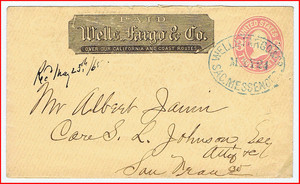 PAID
Wells, Fargo & Co.
OVER OUR CALIFORNIA AND COAST ROUTES
UNITED STATES
WELLS, FARGO
MESSENGER
Rec May 25th /65
Mr Albert
Care S. L. Johnson, Esq
Atty &c
San Fran